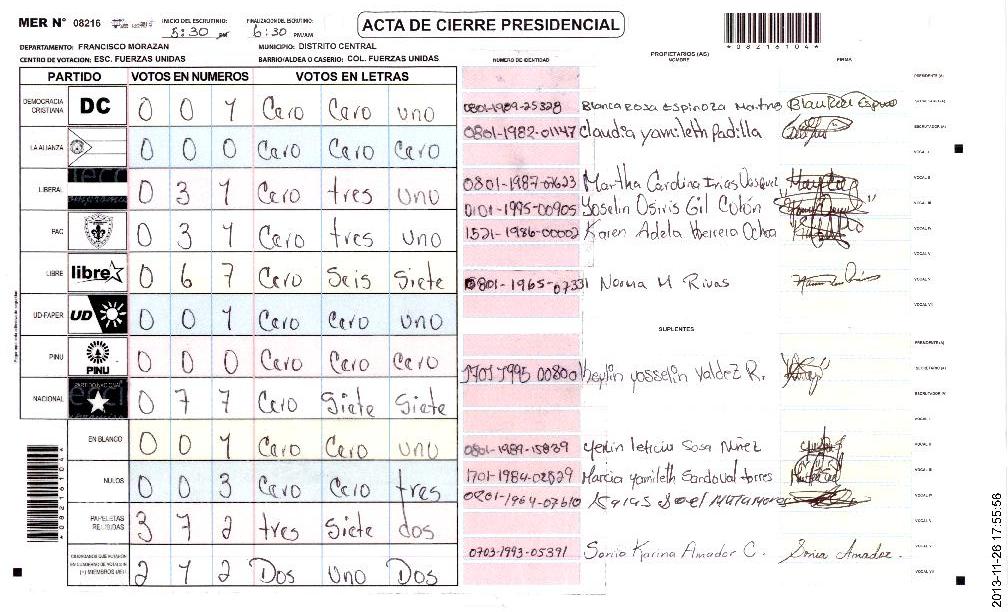 MER N° 08216 INICIO DEL ESCRUTINIO: 5:30 PM FINALIZACION DEL ESCRUTINIO: 6:30 PM/AM
ACTA DE CIERRE PRESIDENCIAL
*08216104*
DEPARTAMENTO: FRANCISCO MORAZAN MUNICIPIO: DISTRITO CENTRAL
CENTRO DE VOTACION: ESC. FUERZAS UNIDAS BARRIO/ALDEA O CASERIO: COL. FUERZAS UNIDAS
NUMERO DE IDENTIDAD PROPIETARIOS (AS) NOMBRE FIRMA
PARTIDO VOTOS EN NUMEROS VOTOS EN LETRAS
DEMOCRACIA CRISTIANA DC 0 0 1 Cero Cero uno
LA ALIANZA 0 0 0 Cero Cero Cero
LIBERAL 0 3 1 Cero tres uno
PAC 0 3 1 Cero tres uno
LIBRE libre 0 6 7 Cero Seis Siete
UD-FAPER UD 0 0 1 Cero Cero uno
PINU PINU 0 0 0 Cero Cero Cero
NACIONAL 0 7 7 Cero Siete Siete
EN BLANCO 0 0 1 Cero Cero uno
NULOS 0 0 3 Cero Cero tres
PAPELETAS RECIBIDAS 3 7 2 tres Siete dos
CIUDADANOS QUE VOTARON EN CUADERNO DE VOTACION (+) MIEMBROS MER 2 1 2 Dos uno Dos
PRESIDENTE (A)
0801-1989-25328 Blanca Rosa Espinoza SECRETARIO (A)
0801-1982-01147 Claudia yamileth padilla ESCRUTADOR (A)
VOCAL I
0801-1987-07623 Martha Carolina Vasquez VOCAL II
0101-1995-00905 Yoselin Osiris Gil Colón VOCAL III
1521-1986-00002 Karen Adela Herrera Ochoa VOCAL IV
0801-1965-07331 Norma M Rivas VOCAL V
VOCAL VI
SUPLENTES
PRESIDENTE (A)
1701 1995 00800 Keylin yosselin Valdez R. SECRETARIO (A)
ESCRUTADOR (A)
VOCAL I
0801-1989-15839 yenin leticia Sosa Nuñez VOCAL II
1701-1984-02529 Marcia yamileth Sandoval torres VOCAL III
0801-1964-07610 Joel MATAMOROS VOCAL IV
VOCAL V
0703-1993-05391 Sonia Karina Amador C. Sonia Amador. VOCAL VI
VOCAL VII
*08216104*
2013-11-26 17:55:56